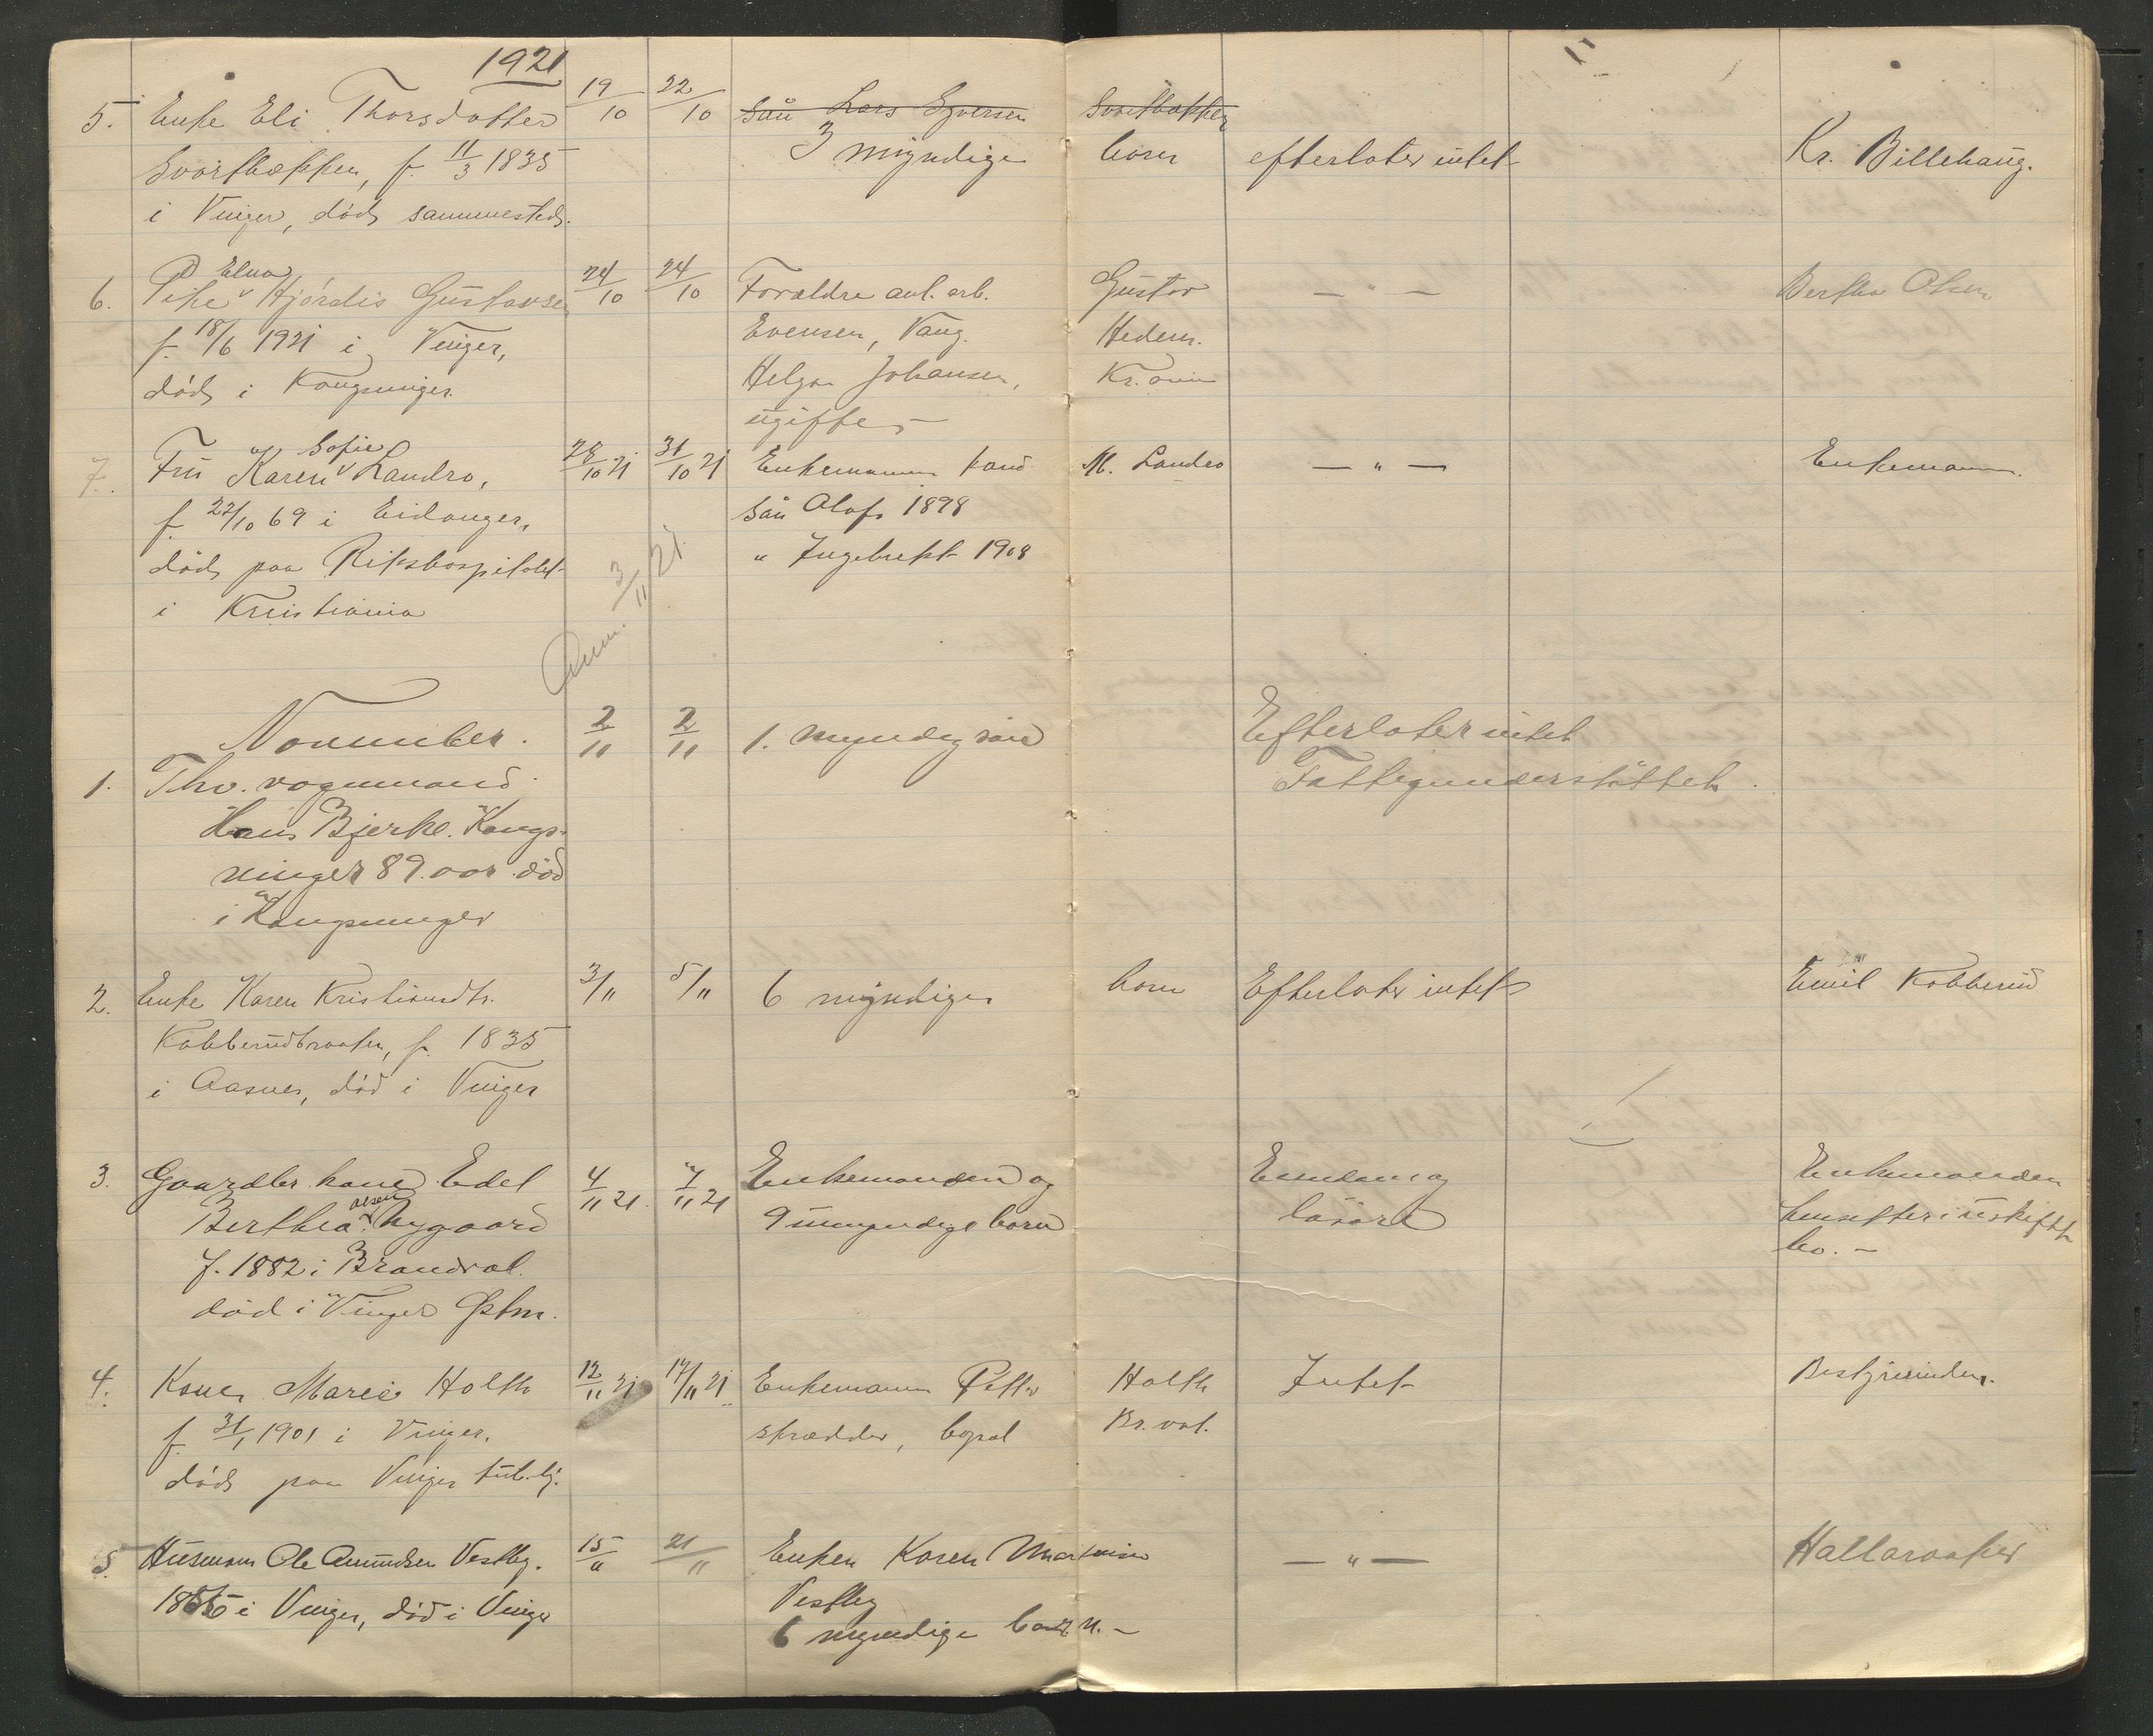 1921
5. Enke Eli Thorsdatter 19/10 22/10 Søn Lars Syversen Svartbækken
3 myndige børn efterlater intet Kr. Billehaug.
Svartbækken, f. 11/3 1835
i Vinger, død sammesteds.
Elna
6. Pike Hjørdis Gustavsen 24/10 24/10 Forældre anl. arb. Gustav — " — Bertha Olsen
f. 18/6 1921 i Vinger, Evensen, Vang. Hedem.
død i Kongsvinger. Helga Johansen, Kr.ania
ugifte
Sofie
7. Fru Karen Landro, 28/10 21 31/10 21 Enkemann M. Landro — " — Enkemann.
f. 22/10 69 i Eidanger, søn Olaf 1898
død paa Rikshospitalet " Ingebrekt 1908
i Kristiania
Anm. 3/11 21.
November. 2/11 2/11 1. myndig søn Efterlater intet
1. Thv. vognmand Fattigunderstøttet.
Hans Bjerke. Kongs-
vinger 89. aar død
i Kongsvinger
2. Enke Karen Kristiansdtr. 3/11 5/11 6 myndige børn Efterlater intet Emil Kobberud
Kobberudbraaten, f. 1835
i Aasnes, død i Vinger
3. Gaardbr. kone Edel 4/11 21. 7/11 21 Enkemanden og Eiendom og Enkemanden
olsen
Berthea Nygaard 9 umyndige børn løsøre hensitter i uskiftet
f. 1882 i Brandval. bo. —
død i Vinger Østm.
4. Kone Marie Holth 12/11 21 14/11 21 Enkemann Petter Holth Intet Bestyrerinden.
f. 31/1 1901 i Vinger. skrædder, bopæl Br.val.
død paa Vinger tub.hj.
5. Husmann Ole Amundsen Vestby. 15/11 21/11 Enken Karen Martinsen — " — Hallaraaker
1855 i Vinger, død i Vinger Vestby
6 myndige børn. —